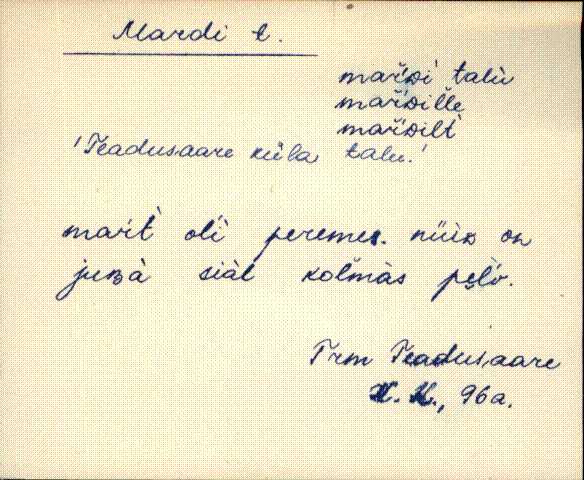 Mardi t.
mar̆ďi talù
mar̆ďille
mar̆ďilt
'Teadusaare küla talu.'
mar̆t oli peremes. nüiᴅ on
juʙà siàl kolmàs pelv.
Trm Teadusaare
96a.